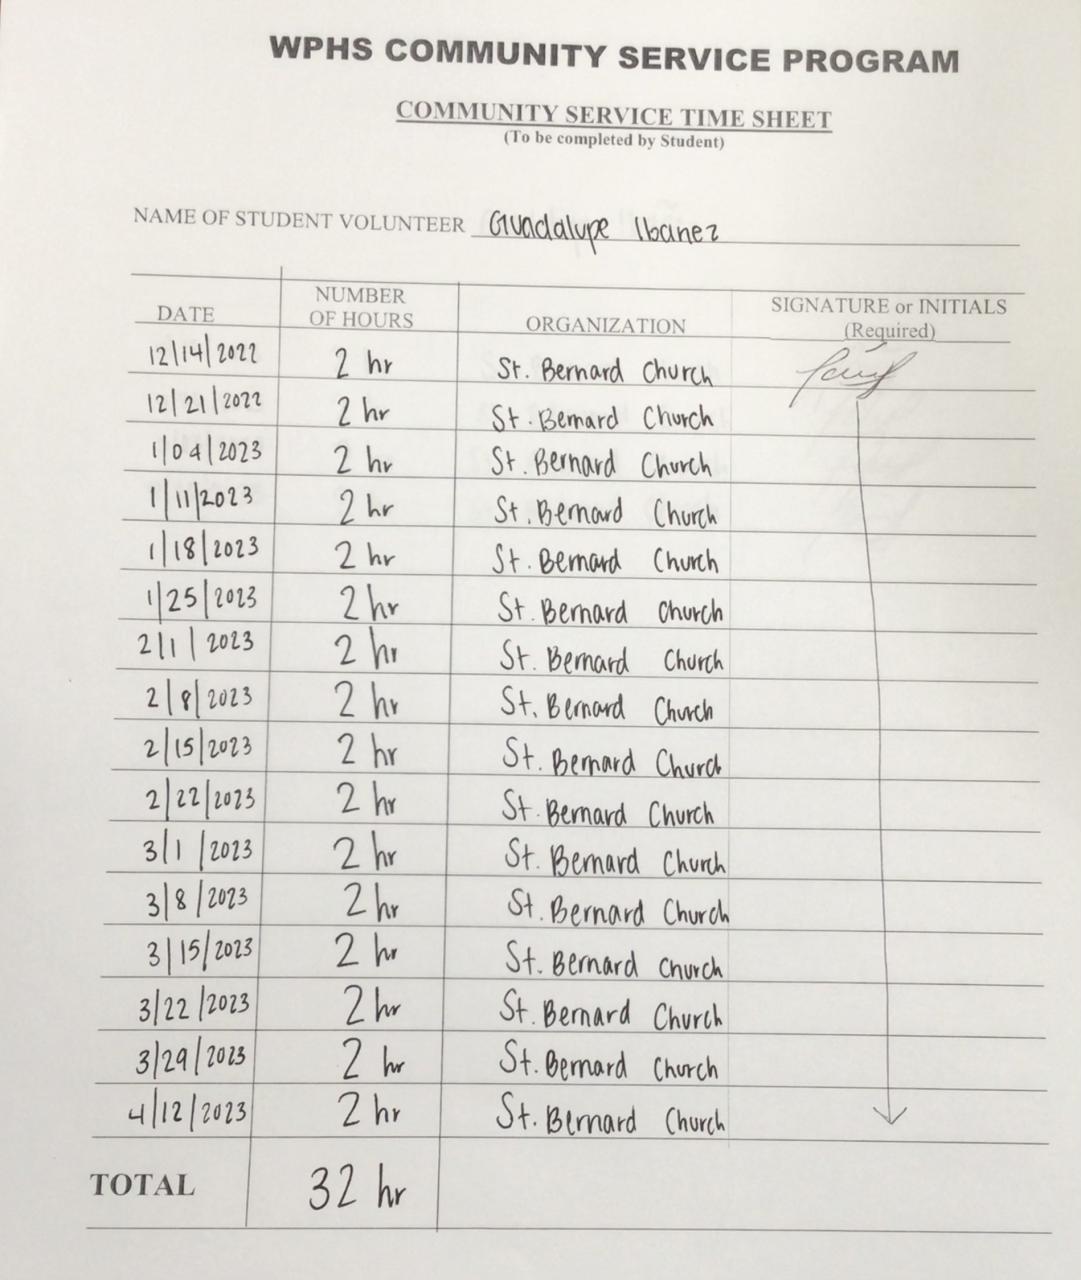 WPHS COMMUNITY SERVICE PROGRAM
COMMUNITY SERVICE TIME SHEET
(To be completed by Student)
NAME OF STUDENT VOLUNTEER Guadalupe Ibanez
DATE NUMBER OF HOURS ORGANIZATION SIGNATURE or INITIALS (Required)
12/14/2022 2 hr St. Bernard Church
12/21/2022 2 hr St. Bernard Church
1/04/2023 2 hr St. Bernard Church
1/11/2023 2 hr St. Bernard Church
1/18/2023 2 hr St. Bernard Church
1/25/2023 2 hr St. Bernard Church
2/1/2023 2 hr St. Bernard Church
2/8/2023 2 hr St. Bernard Church
2/15/2023 2 hr St. Bernard Church
2/22/2023 2 hr St. Bernard Church
3/1/2023 2 hr St. Bernard Church
3/8/2023 2 hr St. Bernard Church
3/15/2023 2 hr St. Bernard Church
3/22/2023 2 hr St. Bernard Church
3/29/2023 2 hr St. Bernard Church
4/12/2023 2 hr St. Bernard Church
TOTAL 32 hr